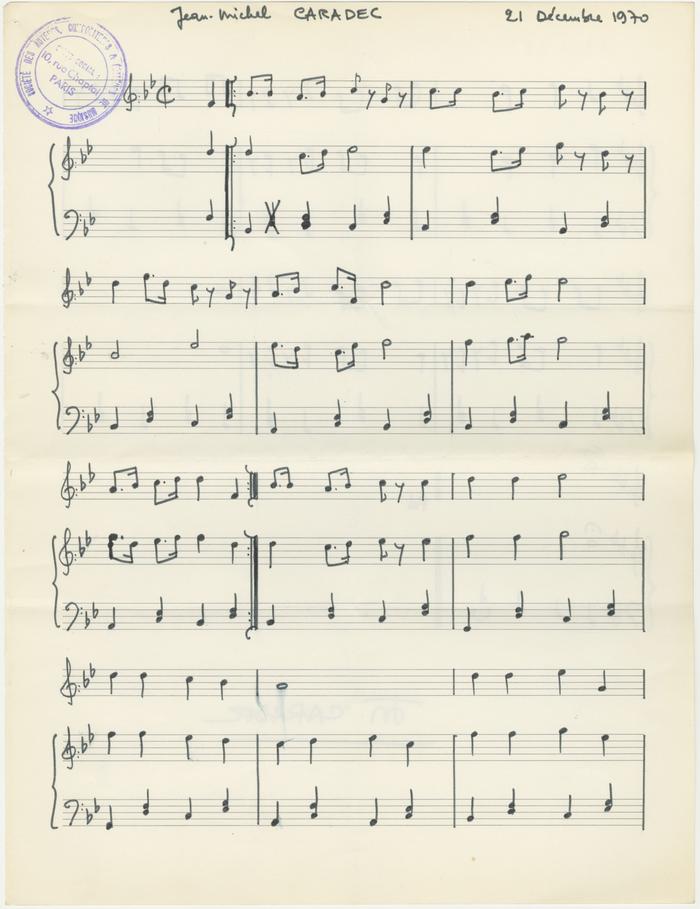 Jean-Michel CARADEC 21 Décembre 1970
SOCIÉTÉ DES AUTEURS, COMPOSITEURS & ÉDITEURS DE MUSIQUE
10, rue Chaptal
PARIS